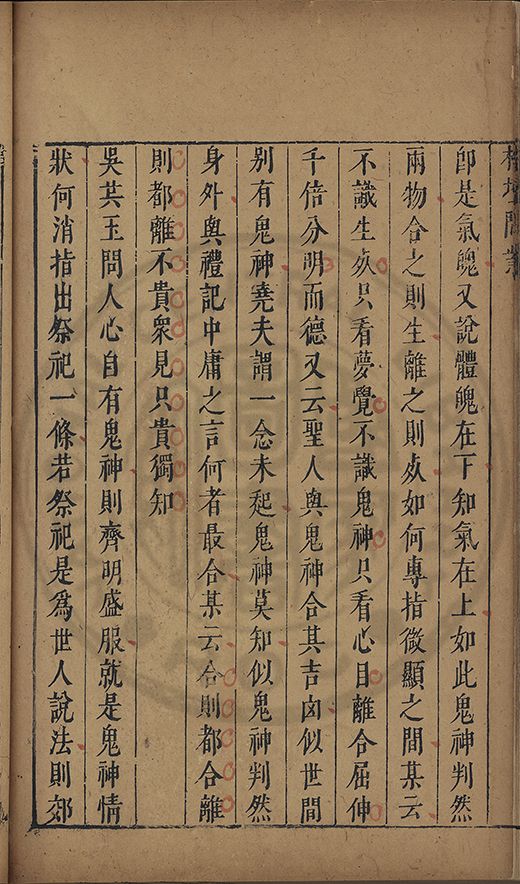 榕壇問業
卽是氣魄又說體魄在下知氣在上如此鬼神判然
兩物合之則生離之則死如何專指微顯之間某云
不識生死只看夢覺不識鬼神只看心目離合屈伸
千倍分明而德又云聖人與鬼神合其吉凶似世間
別有鬼神堯夫謂一念未起鬼神莫知似鬼神判然
身外與禮記中庸之言何者最合某云合則都合離
則都離不貴衆見只貴獨知
吳共玉問人心自有鬼神則齊明盛服就是鬼神情
狀何消指出祭祀一條若祭祀是爲世人說法則郊